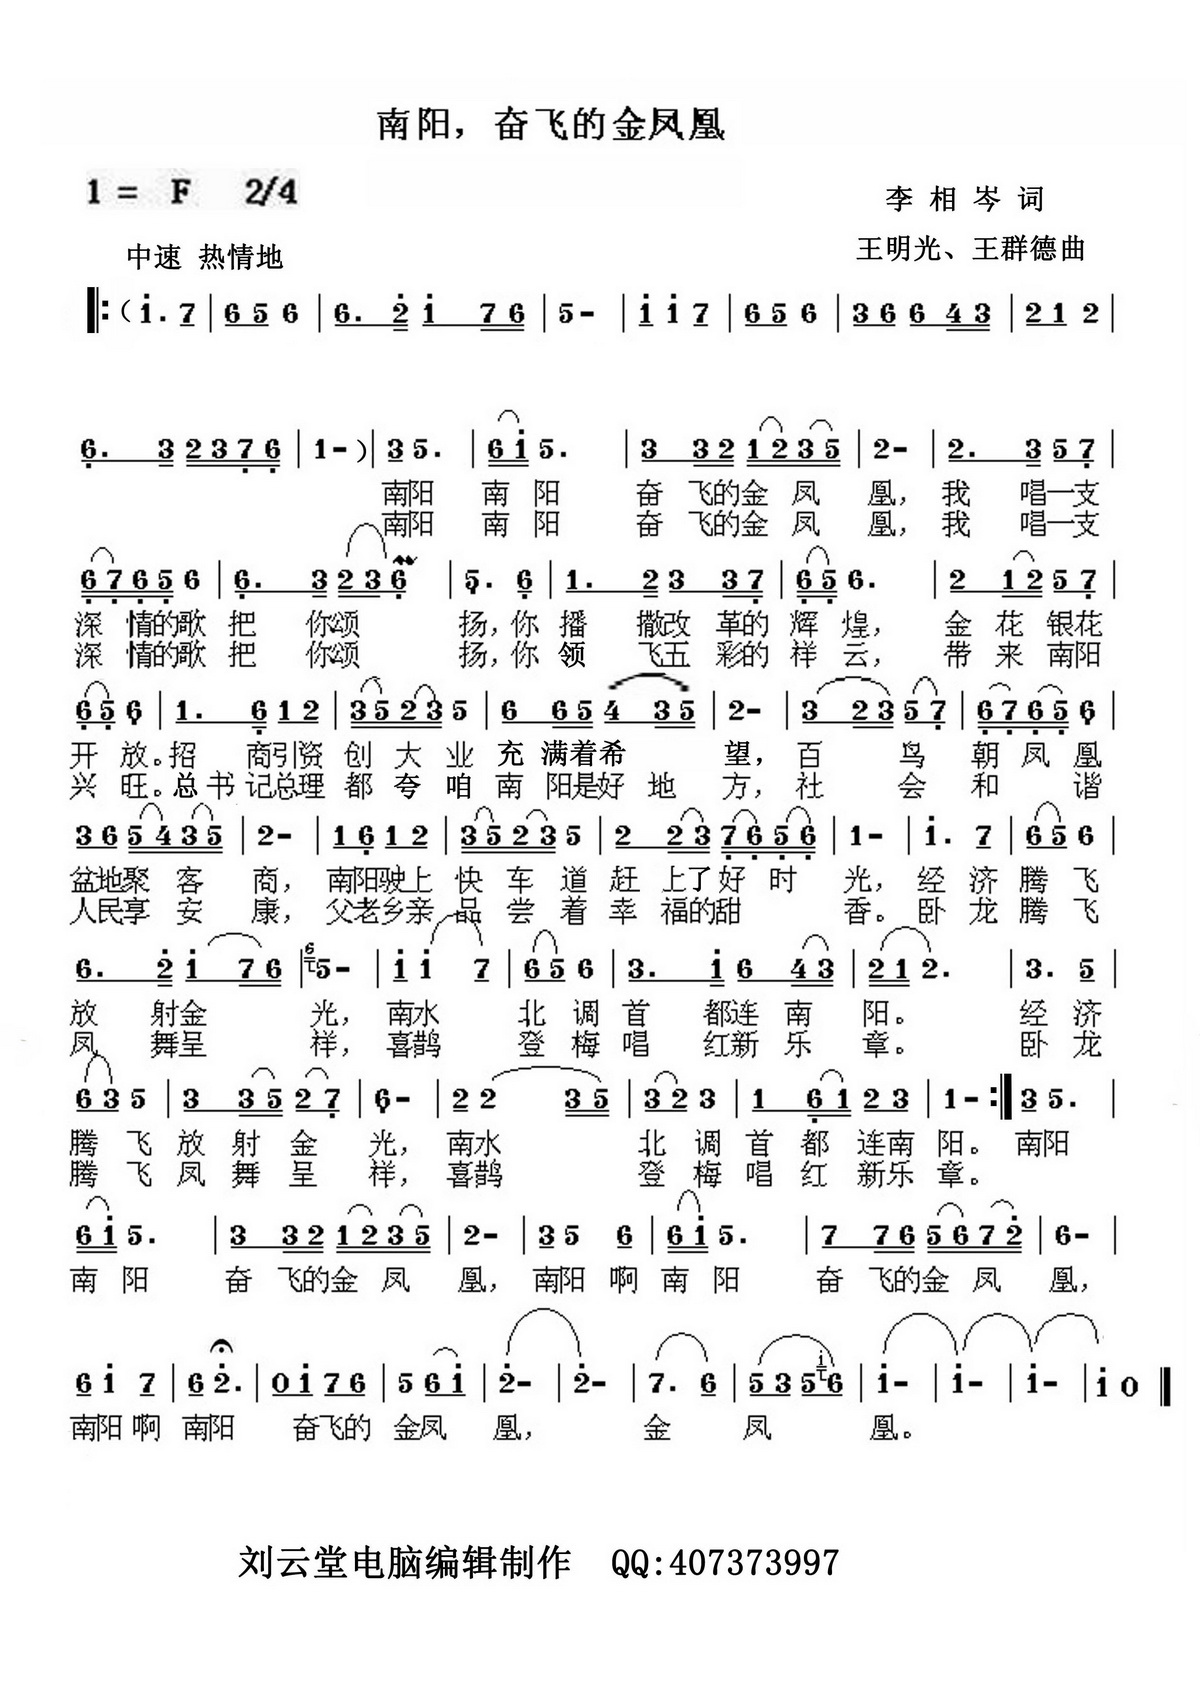 南阳，奋飞的金凤凰
1 = F 2/4
李相岑词
中速 热情地
王明光、王群德曲
‖:（i. 7 | 6 5 6 | 6. 2 i 7 6 | 5 - | i i 7 | 6 5 6 | 3 6 6 4 3 | 2 1 2 |
6. 3 2 3 7 6 | 1 - ）| 3 5. | 6 i 5. | 3 3 2 1 2 3 5 | 2 - | 2. 3 5 7 |
南阳 南 阳 奋 飞的金 凤 凰，我 唱一支
南阳 南 阳 奋 飞的金 凤 凰，我 唱一支
6 7 6 5 6 | 6. 3 2 3 6 | 5. 6 | 1. 2 3 3 7 | 6 5 6. | 2 1 2 5 7 |
深 情的歌 把 你颂 扬，你 播 撒改 革的 辉 煌， 金 花 银花
深 情的歌 把 你颂 扬，你 领 飞五 彩的 祥 云， 带 来 南阳
6 5 6 | 1. 6 1 2 | 3 5 2 3 5 | 6 6 5 4 3 5 | 2 - | 3 2 3 5 7 | 6 7 6 5 6 |
开 放。招 商引资 创 大 业 充 满着希 望，百 鸟 朝 凤 凰
兴 旺。总 书 记总理 都 夸 咱 南 阳是好 地 方，社 会 和 谐
3 6 5 4 3 5 | 2 - | 1 6 1 2 | 3 5 2 3 5 | 2 2 3 7 6 5 6 | 1 - | i. 7 | 6 5 6 |
盆地聚 客 商， 南阳驶上 快 车 道 赶 上了好 时 光，经 济 腾 飞
人民享 安 康， 父老乡亲 品 尝 着 幸 福的甜 香。卧 龙 腾 飞
6. 2 i 7 6 | 6 5 - | i i 7 | 6 5 6 | 3. i 6 4 3 | 2 1 2. | 3. 5 |
放 射金 光，南水 北 调 首 都连 南 阳。 经 济
凤 舞呈 祥，喜鹊 登 梅 唱 红新 乐 章。 卧 龙
6 3 5 | 3 3 5 2 7 | 6 - | 2 2 3 5 | 3 2 3 | 1 6 1 2 3 | 1 - :‖ 3 5. |
腾 飞 放 射 金 光，南水 北 调 首 都 连南 阳。南阳
腾 飞 凤 舞 呈 祥，喜鹊 登 梅 唱 红 新乐 章。
6 i 5. | 3 3 2 1 2 3 5 | 2 - | 3 5 6 | 6 i 5. | 7 7 6 5 6 7 2 | 6 - |
南 阳 奋 飞的金 凤 凰，南阳 啊 南 阳 奋 飞的金 凤 凰，
6 i 7 | 6 2. | 0 i 7 6 | 5 6 i | 2 - | 2 - | 7. 6 | 5 3 5 i 6 | i - | i - | i - | i 0 ‖
南阳 啊 南阳 奋飞的 金凤 凰， 金 凤 凰。
刘云堂电脑编辑制作 QQ:407373997